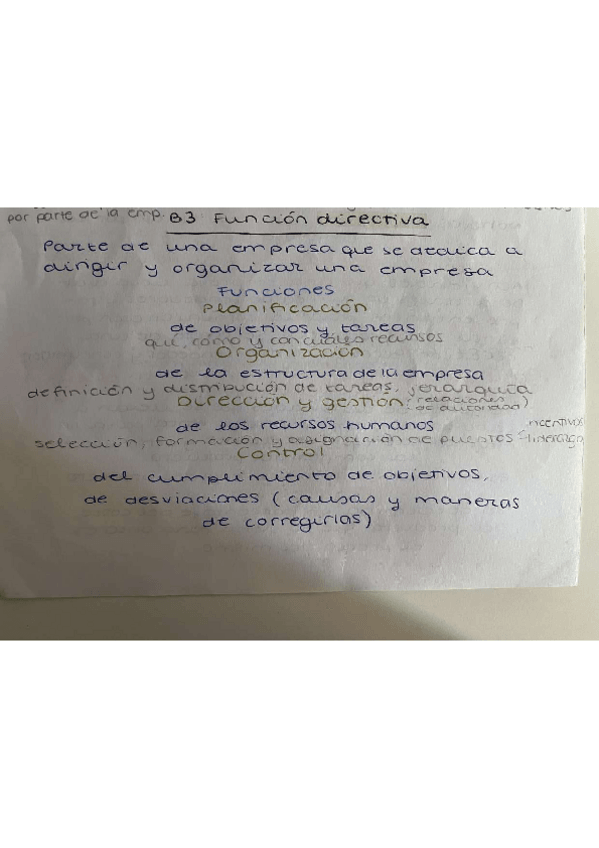 por parte de la emp.
B3 Función directiva
Parte de una empresa que se dedica a
dirigir y organizar una empresa
Funciones
Planificación
de objetivos y tareas
qué, cómo y con cuáles recursos
Organización
de la estructura de la empresa
definición y distribución de tareas, jerarquía
(relaciones de autoridad)
Dirección y gestión
de los recursos humanos
selección, formación y asignación de puestos - incentivos
- liderazgo
Control
del cumplimiento de objetivos,
de desviaciones (causas y maneras
de corregirlas)